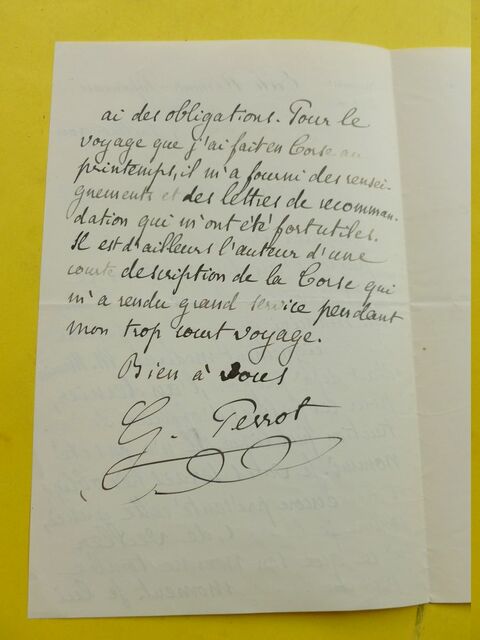 ai des obligations. Pour le
voyage que j'ai fait en Corse au
printemps, il m'a fourni des rensei-
gnements et des lettres de recomman-
dation qui m'ont été fort utiles.
Il est d'ailleurs l'auteur d'une
courte description de la Corse qui
m'a rendu grand service pendant
mon trop court voyage.
Bien à vous
G. Perrot